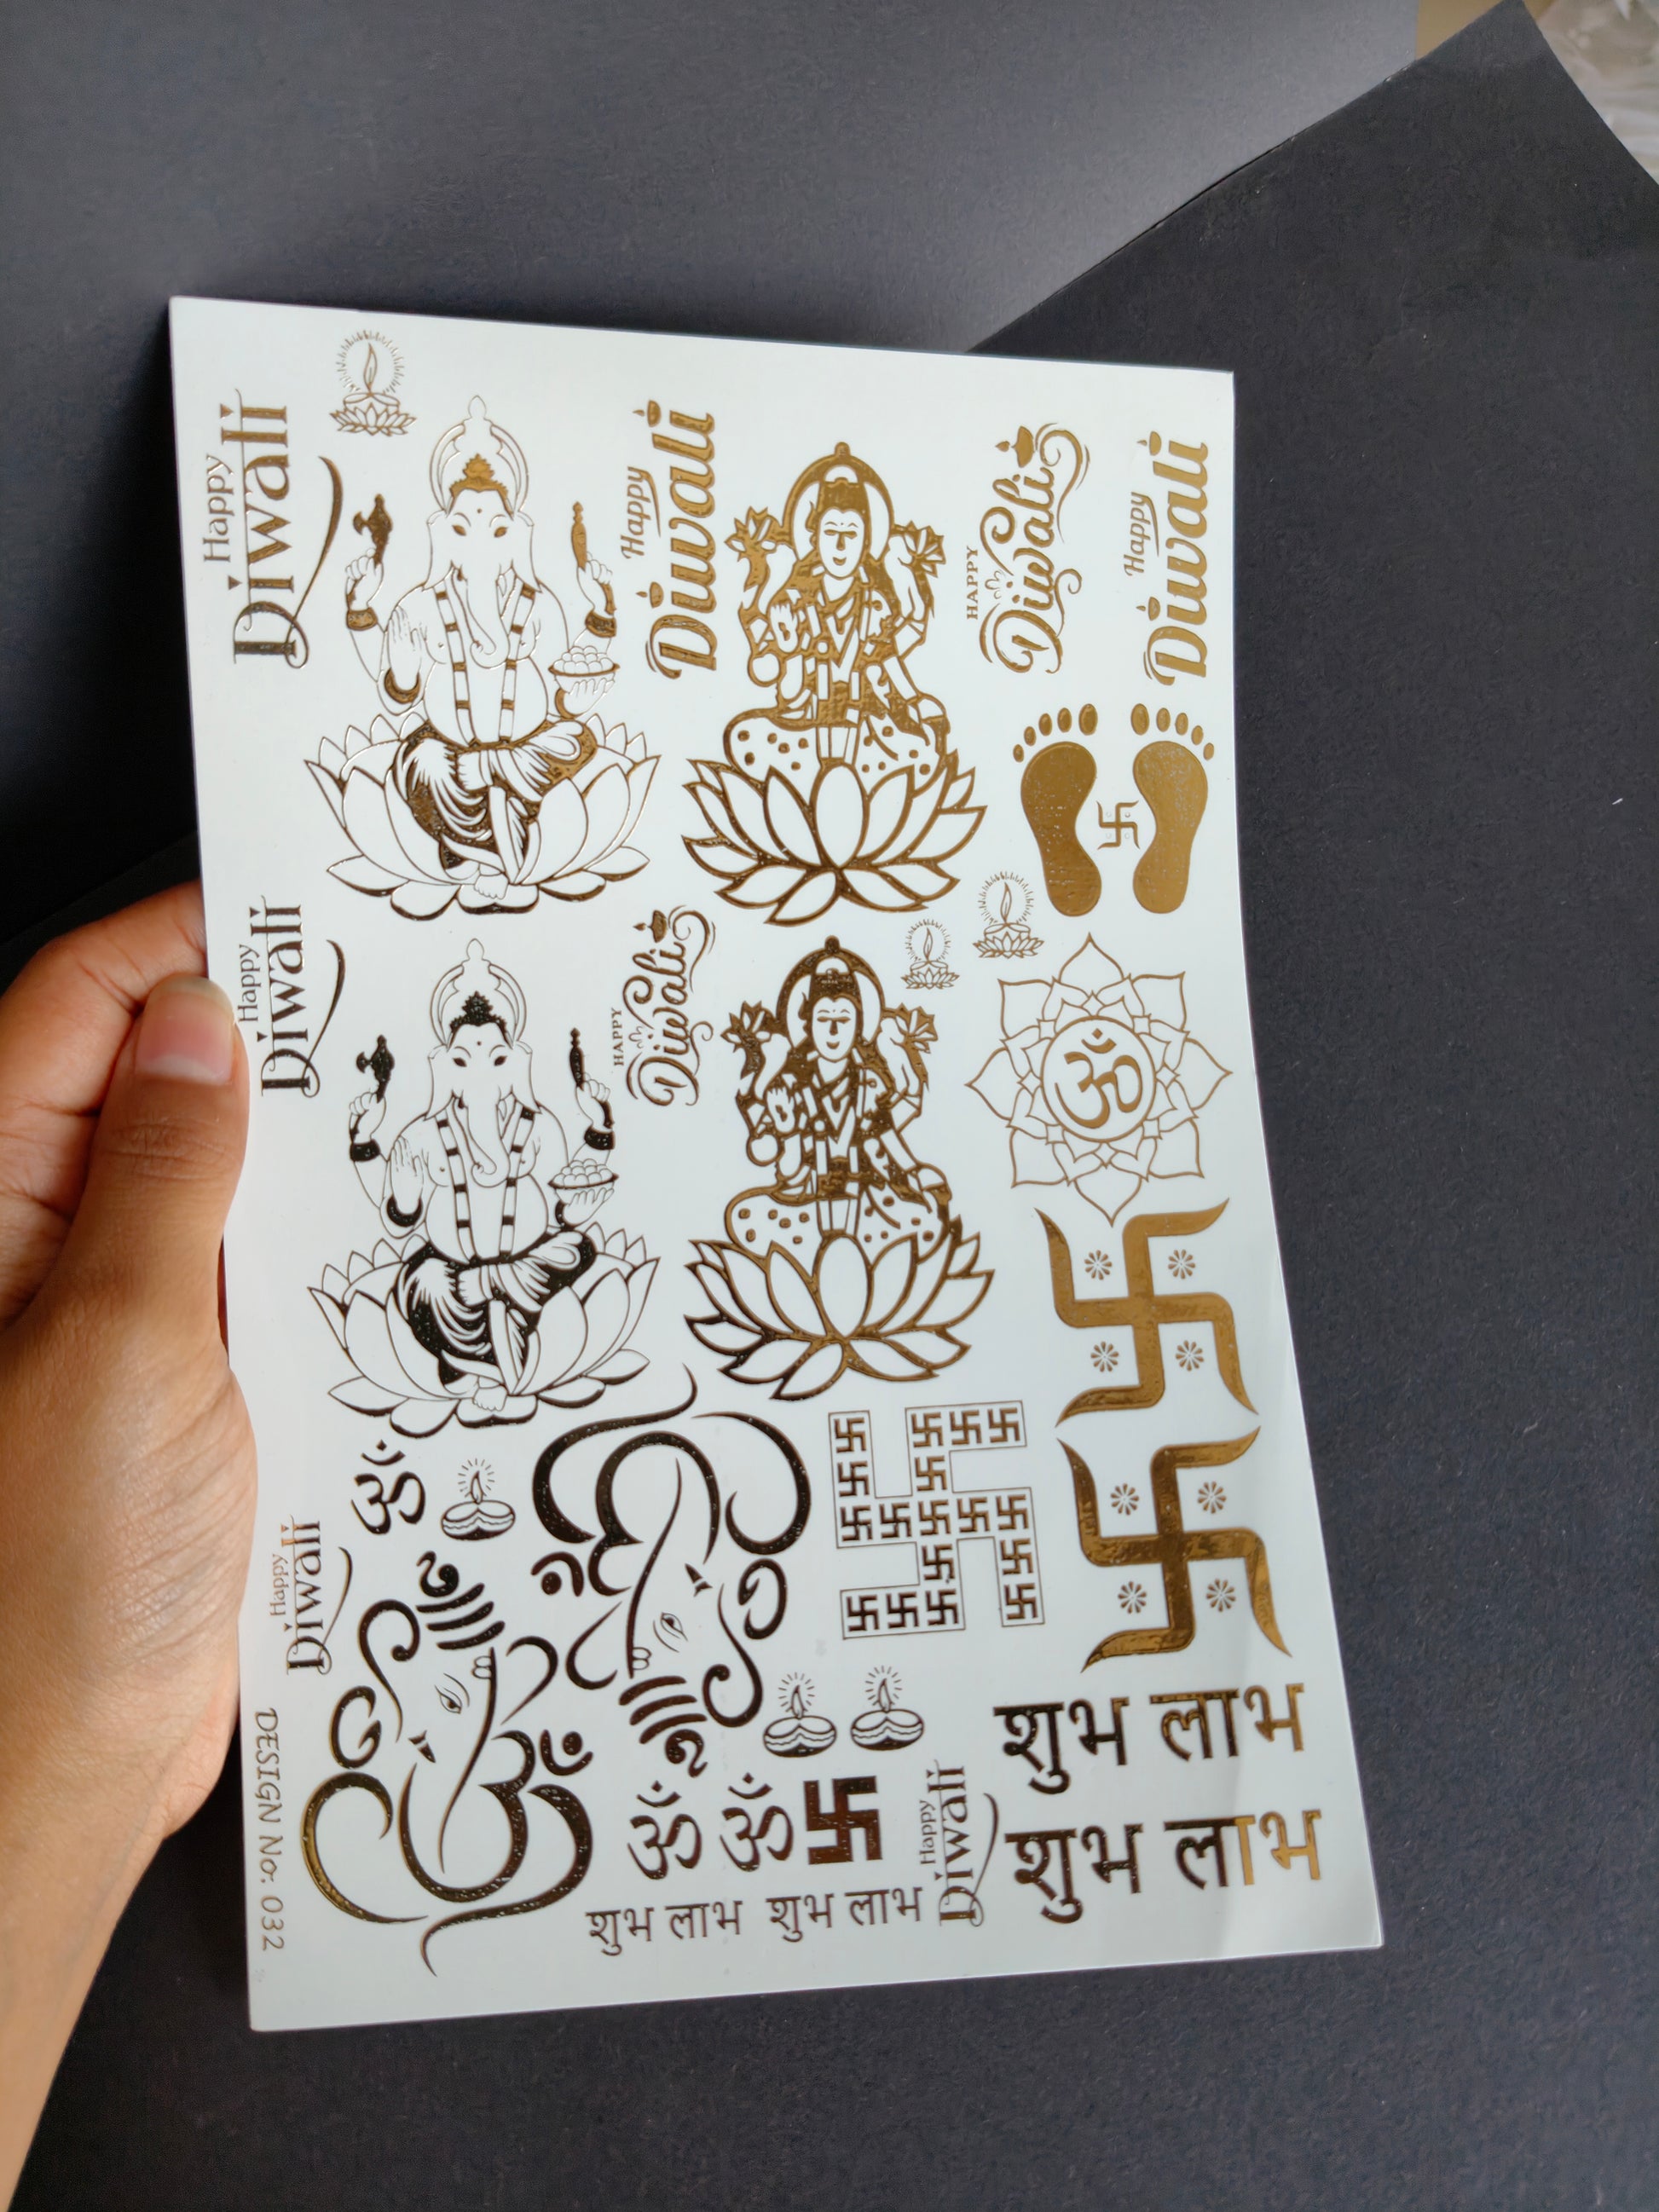 Happy
Diwali
Happy
Diwali
HAPPY
Diwali
Happy
Diwali
Happy
Diwali
HAPPY
Diwali
ॐ
Happy
Diwali
ॐ
शुभ लाभ
ॐ ॐ
Happy
Diwali
शुभ लाभ
शुभ लाभ शुभ लाभ
DESIGN No. 032